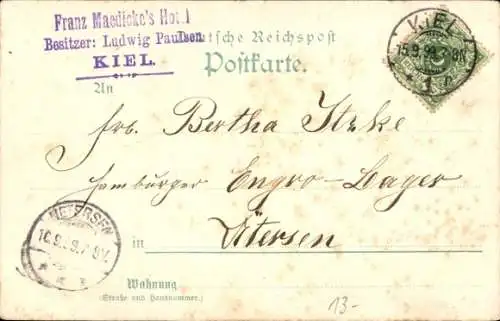 Franz Maedicke's Hotel
Besitzer: Ludwig Paulsen
KIEL.
Deutsche Reichspost
Postkarte.
KIEL
15.9.99.7-8N.
1
An
Frl. Bertha
Hamburger Engro-Lager
in Ütersen
UETERSEN
16.9. 7-8V.
Wohnung
(Straße und Hausnummer.)
13-